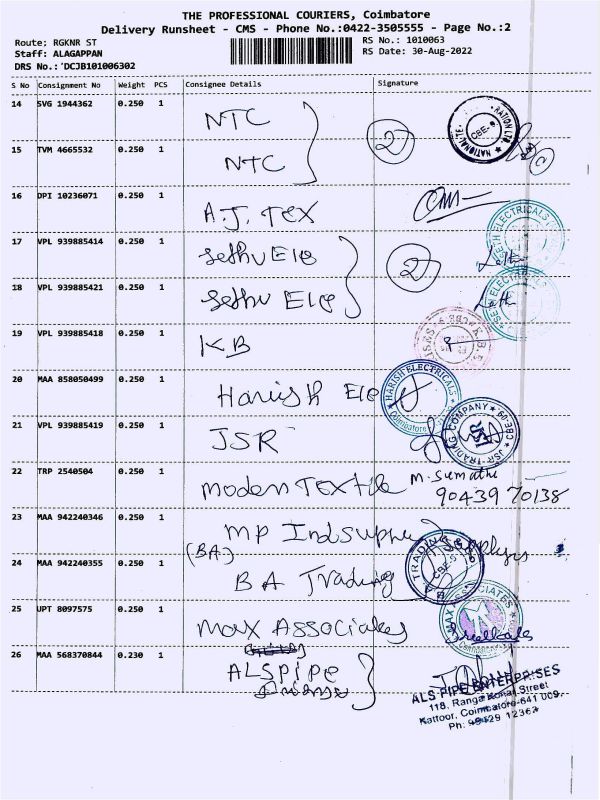 THE PROFESSIONAL COURIERS, Coimbatore
Delivery Runsheet - CMS - Phone No.:0422-3505555 - Page No.:2
Route: RGKNR ST
Staff: ALAGAPPAN
DRS No.:'DCJB101006302
RS No.: 1010063
RS Date: 30-Aug-2022
S No Consignment No Weight PCS Consignee Details Signature
14 SVG 1944362 0.250 1 NTC
15 TVM 4665532 0.250 1 NTC
2
16 DPI 10236071 0.250 1 A.J. TEX
17 VPL 939885414 0.250 1 Sethu Ele
18 VPL 939885421 0.250 1 Sethu Ele
2
19 VPL 939885418 0.250 1 KB
20 MAA 858050499 0.250 1 Harish Ele
HARISH ELECTRICALS
Coimbatore
21 VPL 939885419 0.250 1 JSR
JSR TRADING COMPANY CBE-09
JSR
22 TRP 2540504 0.250 1 Modern Textile M. Sumathi
90439 70138
23 MAA 942240346 0.250 1 MP
(BA)
24 MAA 942240355 0.250 1 BA Trading
B.A. TRADING
CBE-9
25 UPT 8097575 0.250 1 Max Associates
MAX ASSOCIATES
26 MAA 568370844 0.230 1
ALS PIPE
ALS PIPE ENTERPRISES
118, Ranga Konar Street
Kattoor, Coimbatore-641 009.